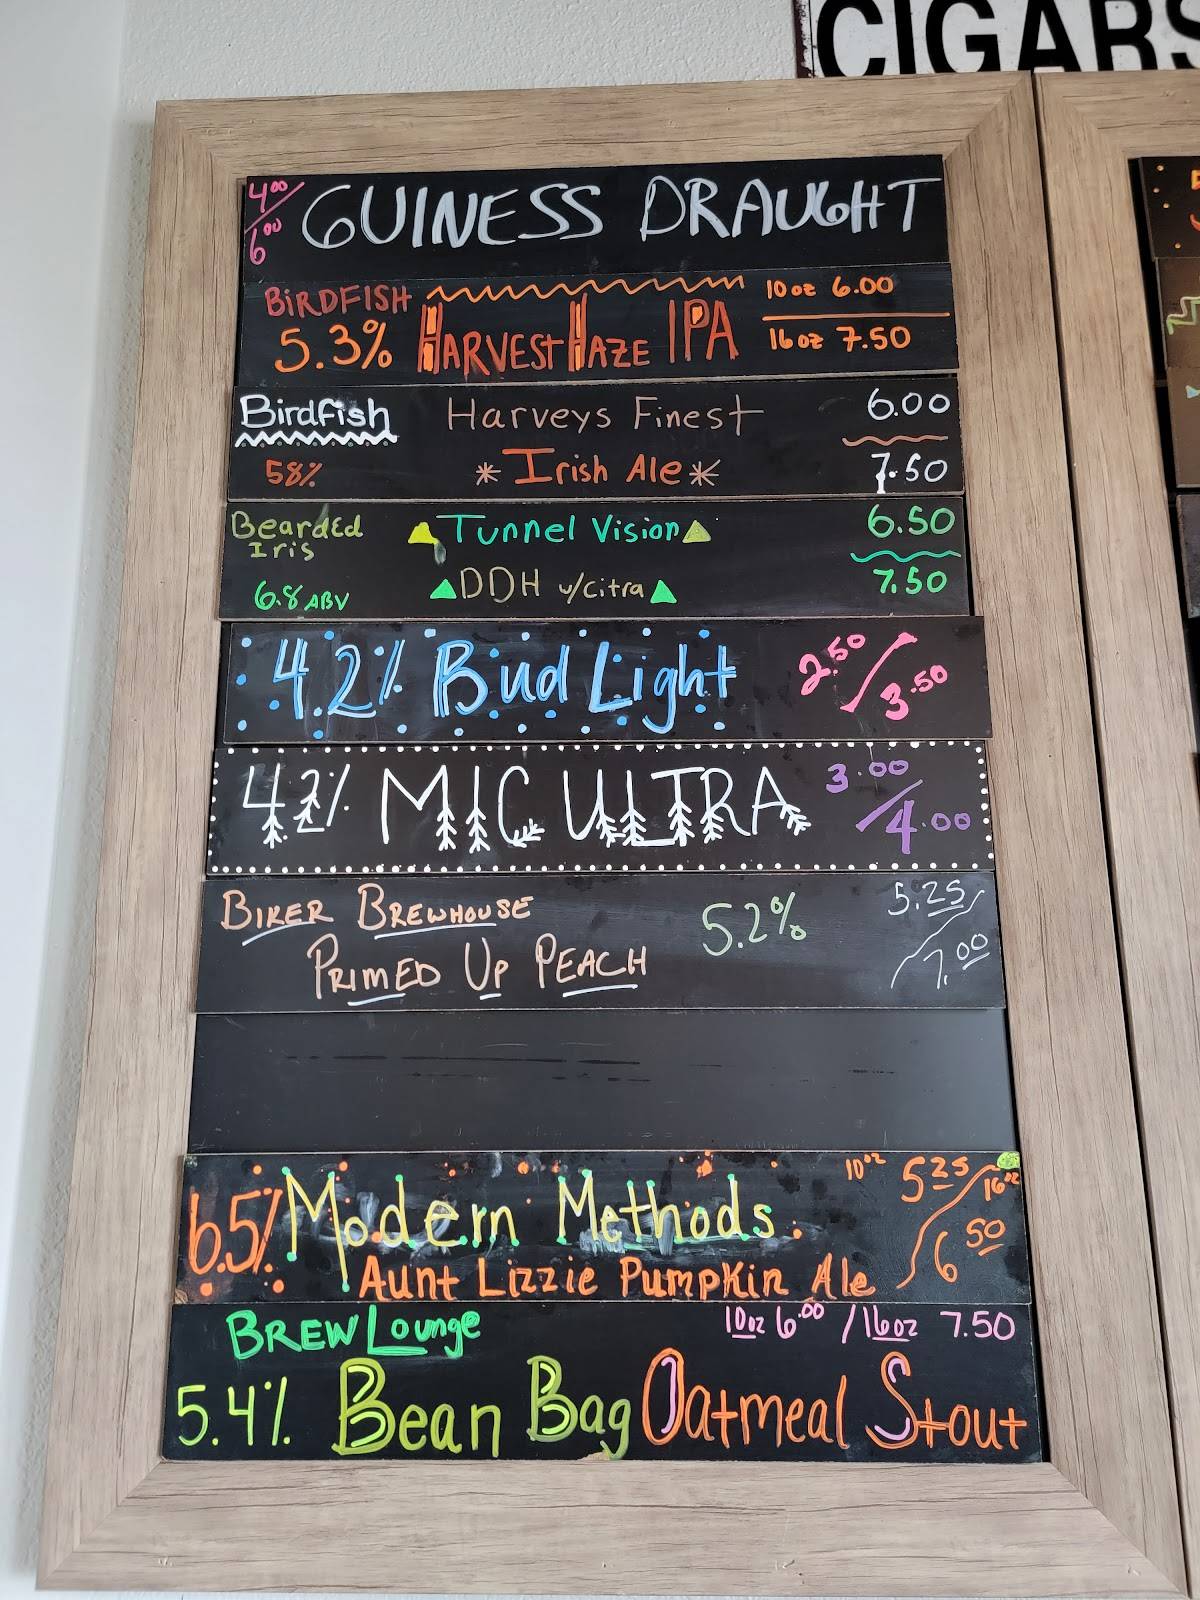 CIGARS
4.00/6.00 GUINESS DRAUGHT
BIRDFISH
5.3% HARVEST HAZE IPA
10oz 6.00
16oz 7.50
Birdfish Harveys Finest 6.00
58% *Irish Ale* 7.50
Bearded Iris Tunnel Vision 6.50
6.8 ABV DDH w/Citra 7.50
4.2% Bud Light 2.50/3.50
42% MIC ULTRA 3.00/4.00
BIKER BREWHOUSE 5.2% 5.25/7.00
PRIMED UP PEACH
6.5% Modern Methods 10oz 5.25/16oz 6.50
Aunt Lizzie Pumpkin Ale
BREW Lounge 10oz 6.00/16oz 7.50
5.4% Bean Bag Oatmeal Stout